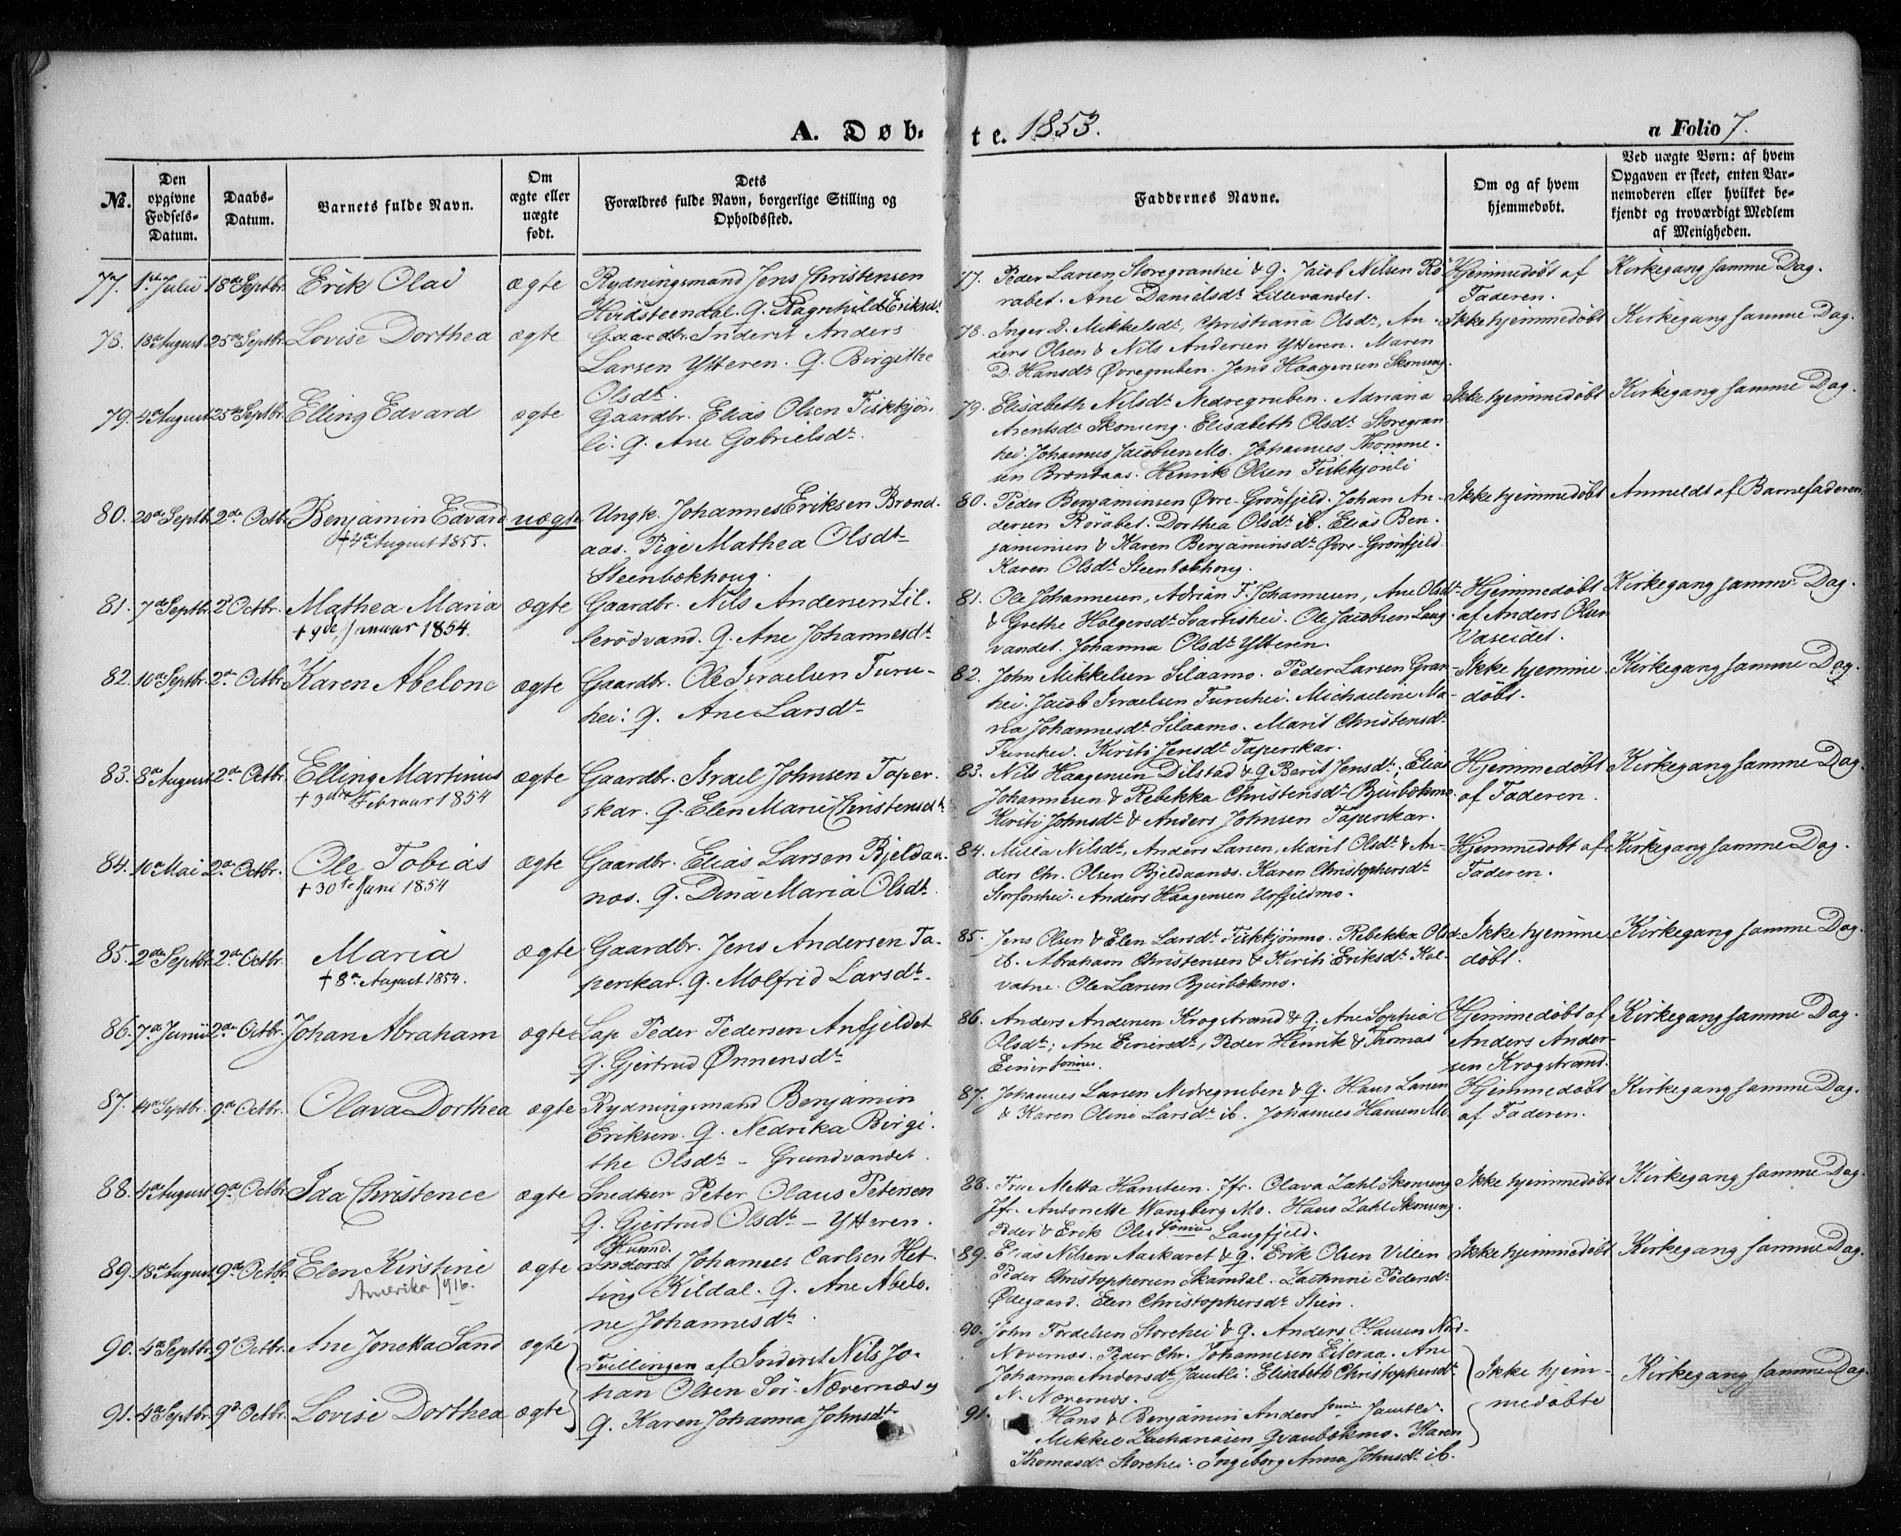 A. Døb-
te. 1853.
a Folio 7.
№.
Den opgivne Fødsels-Datum.
Daabs-Datum.
Barnets fulde Navn.
Om ægte eller uægte født.
Dets Forældres fulde Navn, borgerlige Stilling og Opholdssted.
Faddernes Navne.
Om og af hvem hjemmedøbt.
Ved uægte Børn: af hvem Opgaven er skeet, enten Barnemoderen eller hvilket bekjendt og troværdigt Medlem af Menigheden.
77. 1ste Julii 18de Septbr. Erik Olai ægte Rydningsmand Jens Christensen
Hvidsteendal. Q. Ragnhild Eriksdt.
77. Peder Larsen Storegranhei & Q. Jacob Nilsen Rö-
rabet. Ane Danielsdt Lillevandet.
Hjemmedøbt af
Faderen.
Kirkegang samme Dag.
78. 18de August 25de Septbr. Lovise Dorthea ægte Gaardbr. Inderst Anders
Larsen Ytteren. Q. Birgithe
Olsdt.
78. Inger D. Mikkelsdt, Christiana Olsdt, An-
ders Olsen & Nils Andersen Ytteren. Maren
D. Hansdt Øvregruben. Jens Haagensen Skonseng.
Ikke hjemmedøbt
Kirkegang samme Dag.
79. 4de August 25de Septbr. Elling Edvard ægte Gaardbr. Elias Olsen Fiskkjön-
li. Q. Ane Gabrielsdt.
79. Elisabeth Nilsdt Nedregruben. Adriana
Arentsdt Skonseng. Elisabeth Olsdt Storegran-
hei. Johannes Jacobsen Mo. Johannes Thomme-
sen Brendaas. Henrik Olsen Fiskkjönli
Ikke hjemmedøbt
Kirkegang samme Dag.
80. 20de Septbr. 2de Octbr. Benjamin Edvard uægte Ungk. Johannes Eriksen Brend-
† 4de August 1855.
aas. Pige Mathea Olsdt
Steenbækhoug.
80. Peder Benjaminsen Øvre-Grönfjeld. Johan An-
dersen Rörabet. Dorthea Olsdt ib. Elias Ben-
jaminsen & Karen Benjaminsdt Øvre-Grönfjeld.
Karen Olsdt Steenbækhoug.
Ikke hjemmedøbt
Anmeldt af Barnefaderen
81. 7de Septbr. 2de Octbr. Mathea Maria ægte Gaardbr. Nils Andersen Lil-
† 9de Januar 1854.
lerødvand. Q. Ane Johannesdt
81. Ole Johannesen, Adrian F. Johannesen, Ane Olsdt
& Grethe Holgersdt Svartishei. Ole Jacobsen Lang-
vandet. Johanna Olsdt Ytteren.
Hjemmedøbt
af Anders Olsen
Vaseidet.
Kirkegang samme Dag.
82. 10de Septbr. 2de Octbr. Karen Abelone ægte Gaardbr. Ole Israelsen Furu-
hei. Q. Ane Larsdt
82. John Mikkelsen Silaamo. Peder Larsen Gran-
hei. Jacob Israelsen Furuhei. Michaeline Ma-
ria Johannesdt Silaamo. Marit Christensdt
Furuhei. Kirsti Jensdt Taperskar.
Ikke hjemme-
døbt.
Kirkegang samme Dag.
83. 8de August 2de Octbr. Elling Martinus ægte Gaardbr. Israel Johnsen Taper-
† 3die Februar 1854
skar. Q. Elen Marie Christensdt.
83. Nils Haagensen Dilstad & Q. Berit Jensdt; Elias
Johannesen & Rebekka Christensdt Bjurbækmo.
Kirsti Johnsdt & Anders Johnsen Taperskar.
Hjemmedøbt
af Faderen.
Kirkegang samme Dag.
84. 10de Mai 2de Octbr. Ole Tobias ægte Gaardbr. Elias Larsen Bjeldaa-
† 30te Juni 1854
næs. Q. Dina Maria Olsdt.
84. Milla Nilsdt, Anders Larsen, Marit Olsdt & An-
ders Chr. Olsen Bjeldaanæs. Karen Christophersdt
Storforshei. Anders Haagensen Urfjeldmo.
Hjemmedøbt af
Faderen.
Kirkegang samme Dag.
85. 2den Septbr. 2de Octbr. Maria ægte Gaardbr. Jens Andersen Ta-
† 8de August 1854.
perskar. Q. Molfrid Larsdt.
85. Jens Olsen & Elen Larsdt Fiskkjönmo. Rebekka Olsdt
ib. Abraham Christensen & Kirsti Eriksdt Kal-
vatne. Ole Larsen Bjurbækmo.
Ikke hjemme-
døbt.
Kirkegang samme Dag.
86. 7de Junii 2de Octbr. Johan Abraham ægte Lap Peder Pedersen Anfjeldet
Q. Gjertrud Ønnensdt
86. Anders Andersen Krogstrand & Q. Ane Sophia
Olsdt; Ane Einersdt, Peder Henrik & Thomas
Einersønner.
Hjemmedøbt af
Anders Ander-
sen Krogstrand.
Kirkegang samme Dag.
87. 4de Septbr. 9de Octbr. Olava Dorthea ægte Rydningsmand Benjamin
Eriksen. Q. Nedrika Birgi-
the Olsdt - Grundvandet.
87. Johannes Larsen Nedregruben & Q. Hans Larsen
& Karen Oline Larsdt ib. Johannes Hansen Mo
Hjemmedøbt
af Faderen.
Kirkegang samme Dag.
88. 4de August 9de Octbr. Ida Christence ægte Snedker Peter Olaus Petersen
Q. Gjertrud Olsdt - Ytteren.
88. Frue Metta Hansteen. Jfr. Olava Zahl Skonseng
Jfr. Antonette Wangberg Mo. Hans Zahl Skonseng.
Peder & Erik Olssønner Langfjeld.
Ikke hjemmedøbt
Kirkegang samme Dag.
89. 18de August 9de Octbr. Elen Kirstine ægte Huusmd. Inderst Johannes Carlsen Het-
Amerika 1916.
ting Kildal. Q. Ane Abelo-
ne Johannesdt.
89. Elias Nilsen Aaskaret & Q. Erik Olsen Villen
Peder Christophersen Skamdal. Zachrine Pedersdt
Ødegaard. Elen Christophersdt Steen.
Ikke hjemmedøbt
Kirkegang samme Dag.
90. 4de Septbr. 9de Octbr. Ane Jonetta Sand ægte
91. 4de Septbr. 9de Octbr. Lovise Dorthea ægte
Tvillingen af Inderst Nils Jo-
han Olsen Sör-Nævernæs og
Q. Karen Johanna Johnsdt
90. John Fordelsen Storehei & Q. Anders Hansen Nord-
Nævernæs. Peder Chr. Johannesen Eiteraa. Ane
Johanna Andersdt Jamtli. Elisabeth Christophersdt
N. Nævernæs.
91. Hans & Benjamin Anderssønner Jamtli.
Mikkel Zachariasen Qvanbækmo. Karen
Thomasdt Storehei. Ingeborg Anna Johnsdt ib.
Ikke hjem-
medøbte
Kirkegang samme Dag